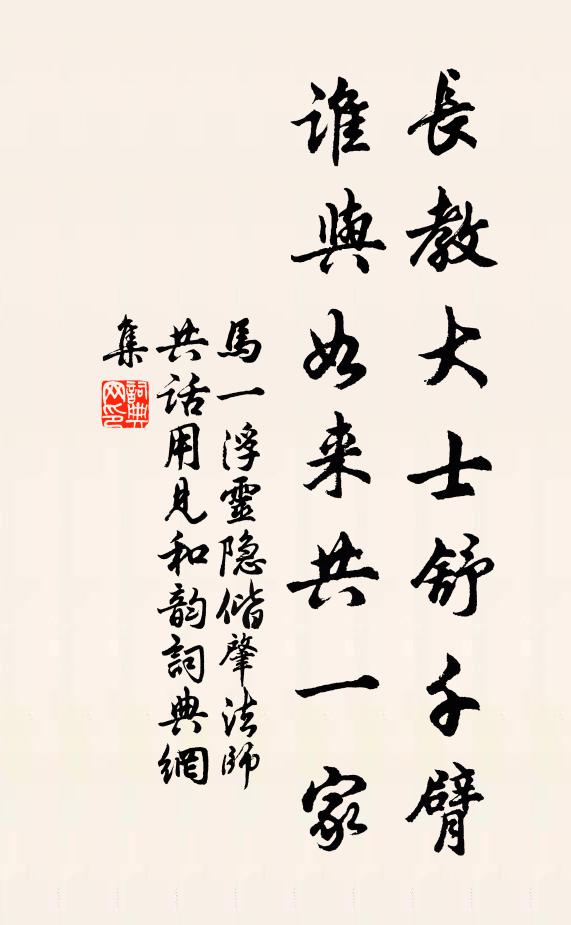 長教大士舒千臂
誰與如来共一家
馬一浮靈隐偕肇法師
共話用見和韵詞典網
集
詞典网印